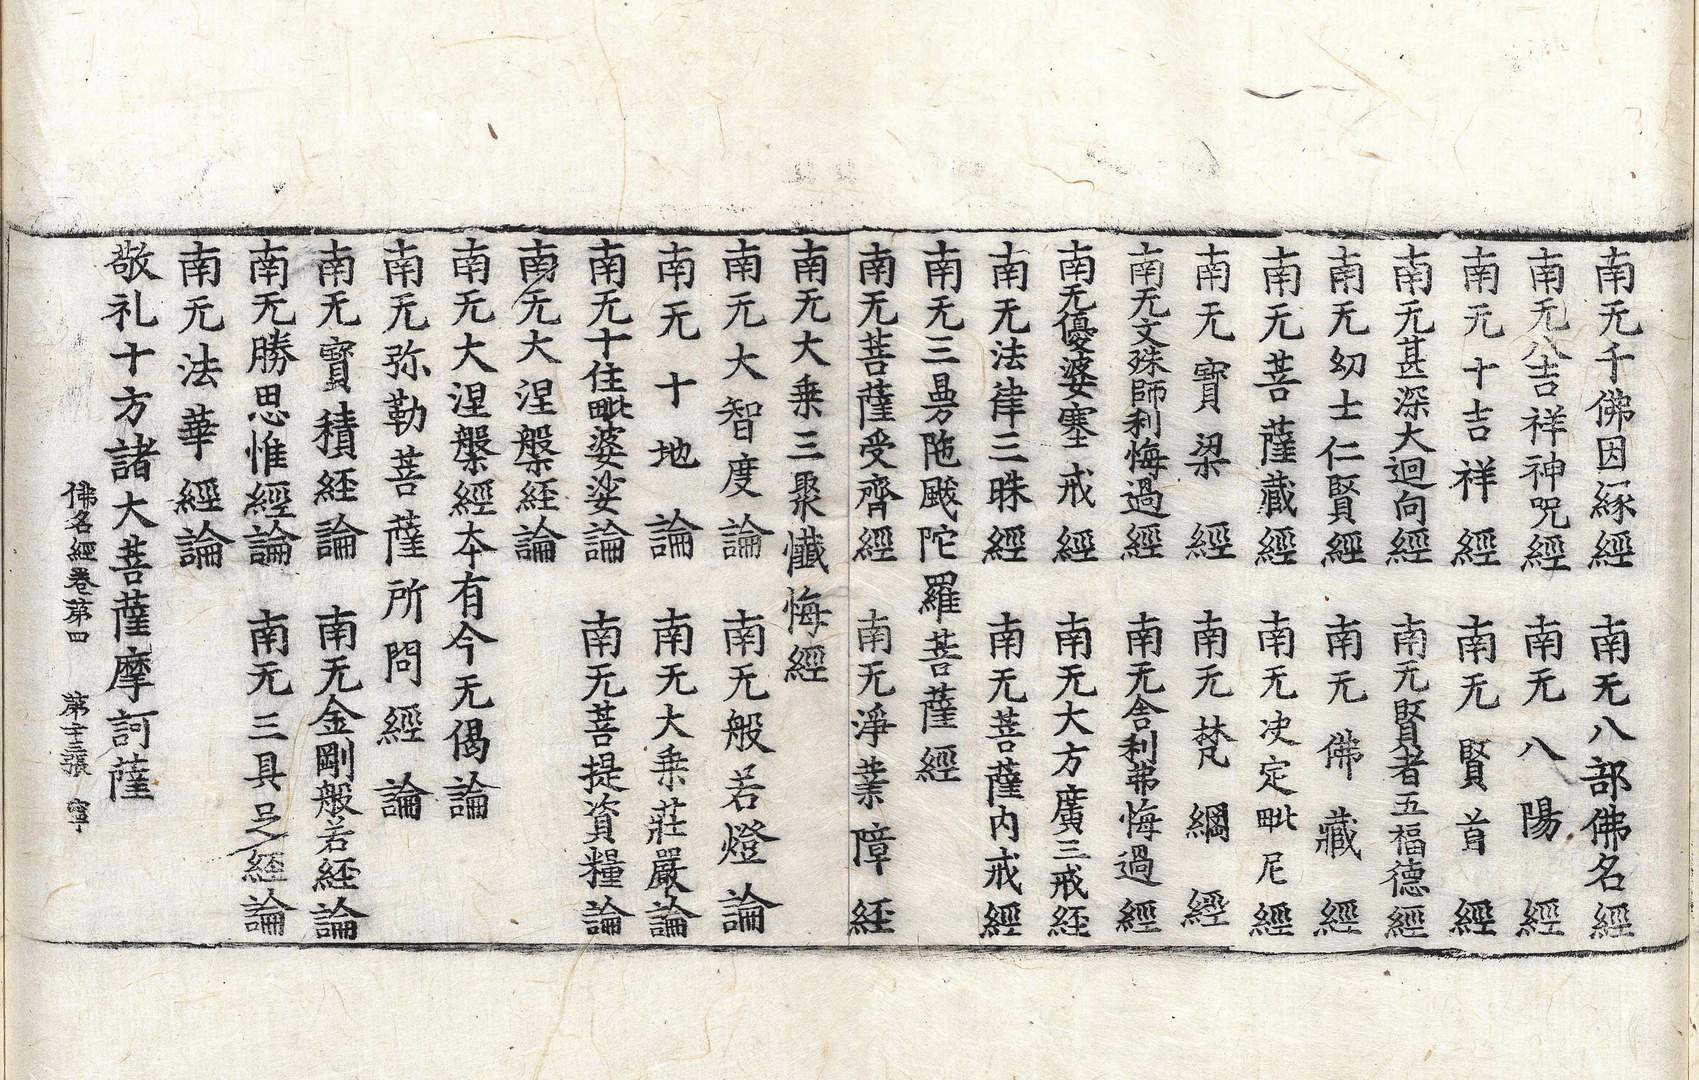 南无千佛因緣經　南无八部佛名經
南无八吉祥神呪經　南无八陽經
南无十吉祥經　南无賢首經
南无甚深大迴向經　南无賢者五福德經
南无幻士仁賢經　南无佛藏經
南无菩薩藏經　南无决定毗尼經
南无寶梁經　南无梵綱經
南无文殊師利悔過經　南无舍利弗悔過經
南无優婆塞戒經　南无大方廣三戒経
南无法律三昧經　南无菩薩内戒經
南无三曼陁颰陀羅菩薩經
南无菩薩受齊經　南无淨業障経
南无大乗三聚懺悔經
南无大智度論　南无般若燈論
南无十地論　南无大乗莊嚴論
南无十住毗婆娑論　南无菩提資糧論
南无大涅槃経論
南无大涅槃經本有今无偈論
南无弥勒菩薩所問經論
南无寶積経論　南无金剛般若経論
南无勝思惟經論　南无三具足経論
南无法華經論
敬礼十方諸大菩薩摩訶薩
佛名經卷第四　第十三張　寧